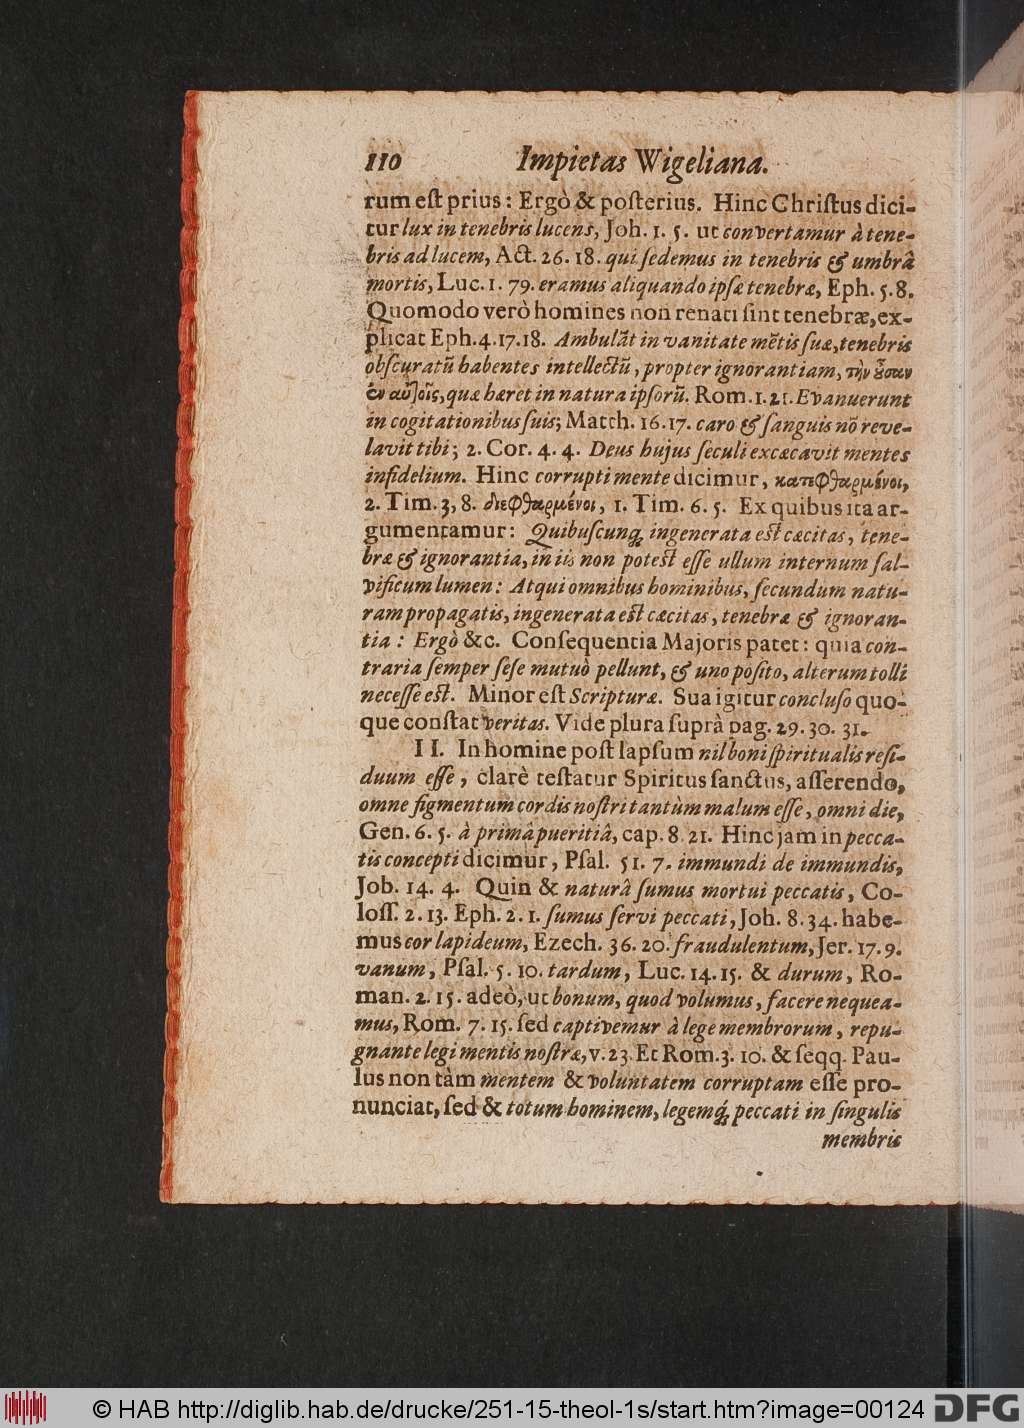 110 Impietas Wigeliana.
rum eſt prius: Ergò & poſterius. Hinc Chriſtus dici-
tur lux in tenebris lucens, Joh. 1. 5. ut convertamur à tene-
bris ad lucem, Act. 26. 18. qui ſedemus in tenebris & umbrâ
mortis, Luc. 1. 79. eramus aliquando ipſæ tenebræ, Eph. 5. 8.
Quomodo verò homines non renati ſint tenebræ, ex-
plicat Eph. 4. 17. 18. Ambulāt in vanitate mētis ſuæ, tenebris
obſcuratū habentes intellectū, propter ignorantiam, τὴν οὖσαν
ἐν αὐτοῖς, quæ hæret in natura ipſorū. Rom. 1. 21. Evanuerunt
in cogitationibus ſuis; Matth. 16. 17. caro & ſanguis nō reve-
lavit tibi; 2. Cor. 4. 4. Deus hujus ſeculi excæcavit mentes
infidelium. Hinc corrupti mente dicimur, κατεφθαρμένοι,
2. Tim. 3, 8. διεφθαρμένοι, 1. Tim. 6. 5. Ex quibus ita ar-
gumentamur: Quibuſcunq; ingenerata eſt cæcitas, tene-
bræ & ignorantia, in iis non poteſt eſſe ullum internum ſal-
vificum lumen: Atqui omnibus hominibus, ſecundum natu-
ram propagatis, ingenerata eſt cæcitas, tenebræ & ignoran-
tia: Ergò &c. Conſequentia Majoris patet: quia con-
traria ſemper ſeſe mutuò pellunt, & uno poſito, alterum tolli
neceſſe eſt. Minor eſt Scripturæ. Sua igitur concluſo quo-
que conſtat veritas. Vide plura ſuprà pag. 29. 30. 31.
II. In homine poſt lapſum nil boni ſpiritualis reſi-
duum eſſe, clarè teſtatur Spiritus ſanctus, aſſerendo,
omne figmentum cordis noſtri tantùm malum eſſe, omni die,
Gen. 6. 5. à primâ pueritiâ, cap. 8. 21. Hinc jam in pecca-
tis concepti dicimur, Pſal. 51. 7. immundi de immundis,
Job. 14. 4. Quin & naturâ ſumus mortui peccatis, Co-
loſſ. 2. 13. Eph. 2. 1. ſumus ſervi peccati, Joh. 8. 34. habe-
mus cor lapideum, Ezech. 36. 20. fraudulentum, Jer. 17. 9.
vanum, Pſal. 5. 10. tardum, Luc. 14. 15. & durum, Ro-
man. 2. 15. adeò, ut bonum, quod volumus, facere nequea-
mus, Rom. 7. 15. ſed captivemur à lege membrorum, repu-
gnante legi mentis noſtræ, v. 23. Et Rom. 3. 10. & ſeqq. Pau-
lus non tàm mentem & voluntatem corruptam eſſe pro-
nunciat, ſed & totum hominem, legemq́; peccati in ſingulis
membris
© HAB http://diglib.hab.de/drucke/251-15-theol-1s/start.htm?image=00124
DFG